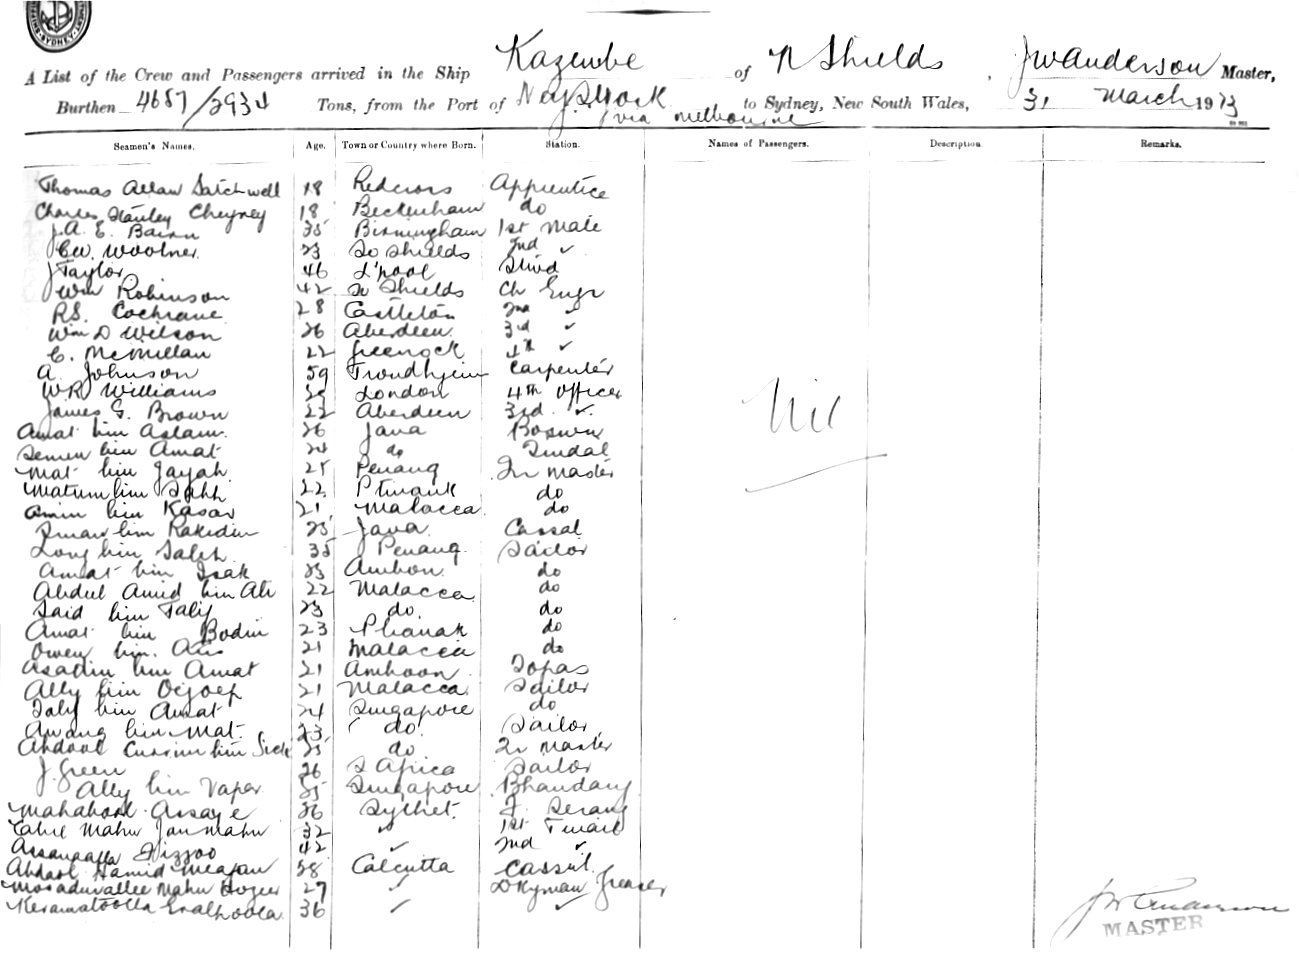 A List of the Crew and Passengers arrived in the Ship Kazembe of N Shields, JW Anderson Master,
Burthen 4657/2934 Tons, from the Port of New York to Sydney, New South Wales, 31 March 1913
via Melbourne
Seamen's Names. Age. Town or Country where Born. Station. Names of Passengers. Description. Remarks.
Thomas Allan Satchwell 18 Redcross Apprentice
Charles Stanley Cheyney 18 Beckenham do
J.A.E. Bairn 35 Birmingham 1st Mate
CW. Woolner 23 So Shields 2nd ✓
J Taylor 46 L'pool Stwd
Wm Robinson 42 So Shields Ch Engr
RS. Cochrane 28 Castleton 2nd ✓
Wm D Wilson 26 Aberdeen 3rd ✓
C. McMillan 22 Greenock 4th ✓
A. Johnson 59 Trondhjem Carpenter
WR Williams London 4th Officer
James G. Brown 22 Aberdeen 3rd ✓
Nil
Amat bin Aslam 26 Java Boswn
Semen bin Amat 24 do Tindal
Mat bin Jayah 25 Penang Qr Master
Matum bin 22 do
Amin bin Kasar 21 Malacca do
bin Rakidin 25 Java Cassab
Long bin Saleh 35 Penang Sailor
Amat bin Isak 23 Ambon do
Abdul Amid bin Ali 22 Malacca do
Said bin Talif 23 do. do
Amat bin Bodin 23 do
Owen bin 21 Malacca do
Asadin bin Amat 21 Amboon Topas
Ally bin 21 Malacca Sailor
Taly bin Amat 24 Singapore do
Awang bin Mat 23 do Sailor
Abdool bin 25 do Qr Master
J. Green 26 S Africa Sailor
Ally bin Vaper 35 Singapore Bhandary
Assaye 36 Sylhet. F. Serang
Mahn Jan Mahn 32 ✓ 1st
42 ✓ 2nd ✓
Abdool Hamid Meajan 38 Calcutta Cassab
Mahn 27 ✓ Dkyman Greaser
Keramatoolla 36 ✓ ✓
JW Anderson
MASTER